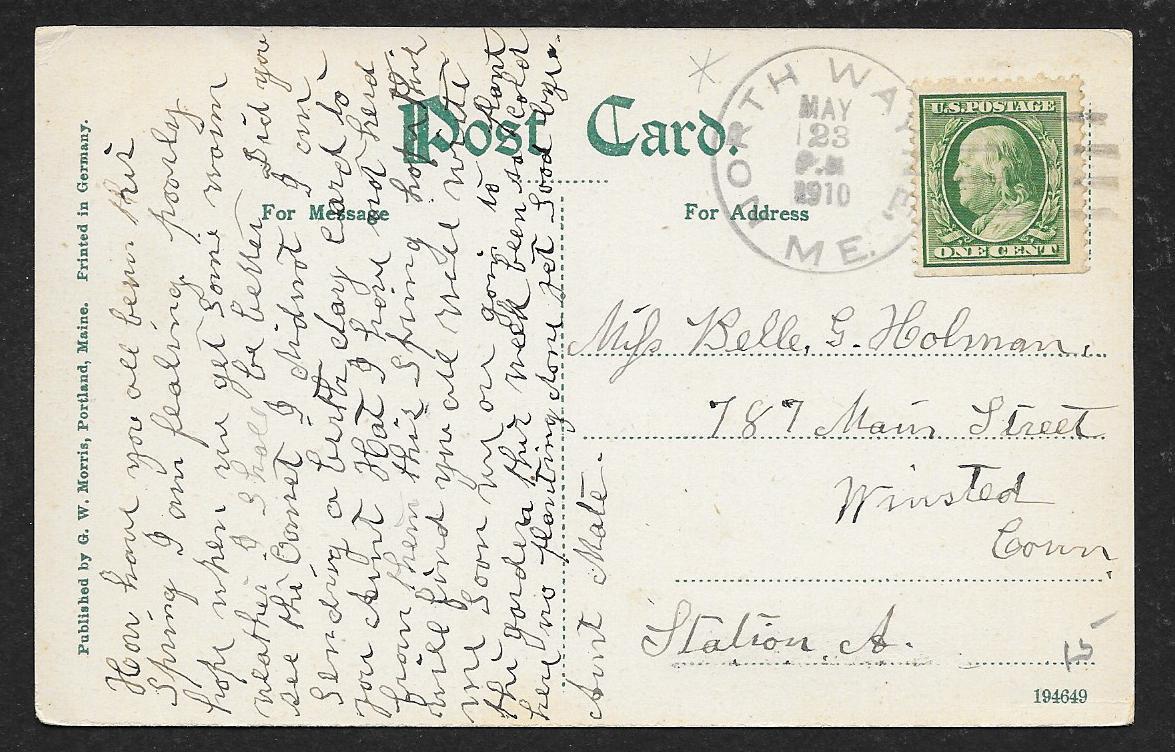 Post Card.
For Message
For Address
NORTH WAYNE ME.
MAY
23
P.M
1910
U.S. POSTAGE
ONE CENT
Published by G. W. Morris, Portland, Maine. Printed in Germany.
How have you all been this
Spring I am fealing poorly
hope when we get Some worm
weather I Shall be better Did you
see the Comet I didnot I am
Sending a birth day Card to
your Aunt Hat I have not herd
from them this Spring hope this
will find you all well write
me Soon are you going to plant
the garden this week been so Cold
here no planting done yet Good bye.
Aunt Mate.
Miss Belle, G. Holman,
787 Main Street
Winsted
Conn,
Station A.
194649